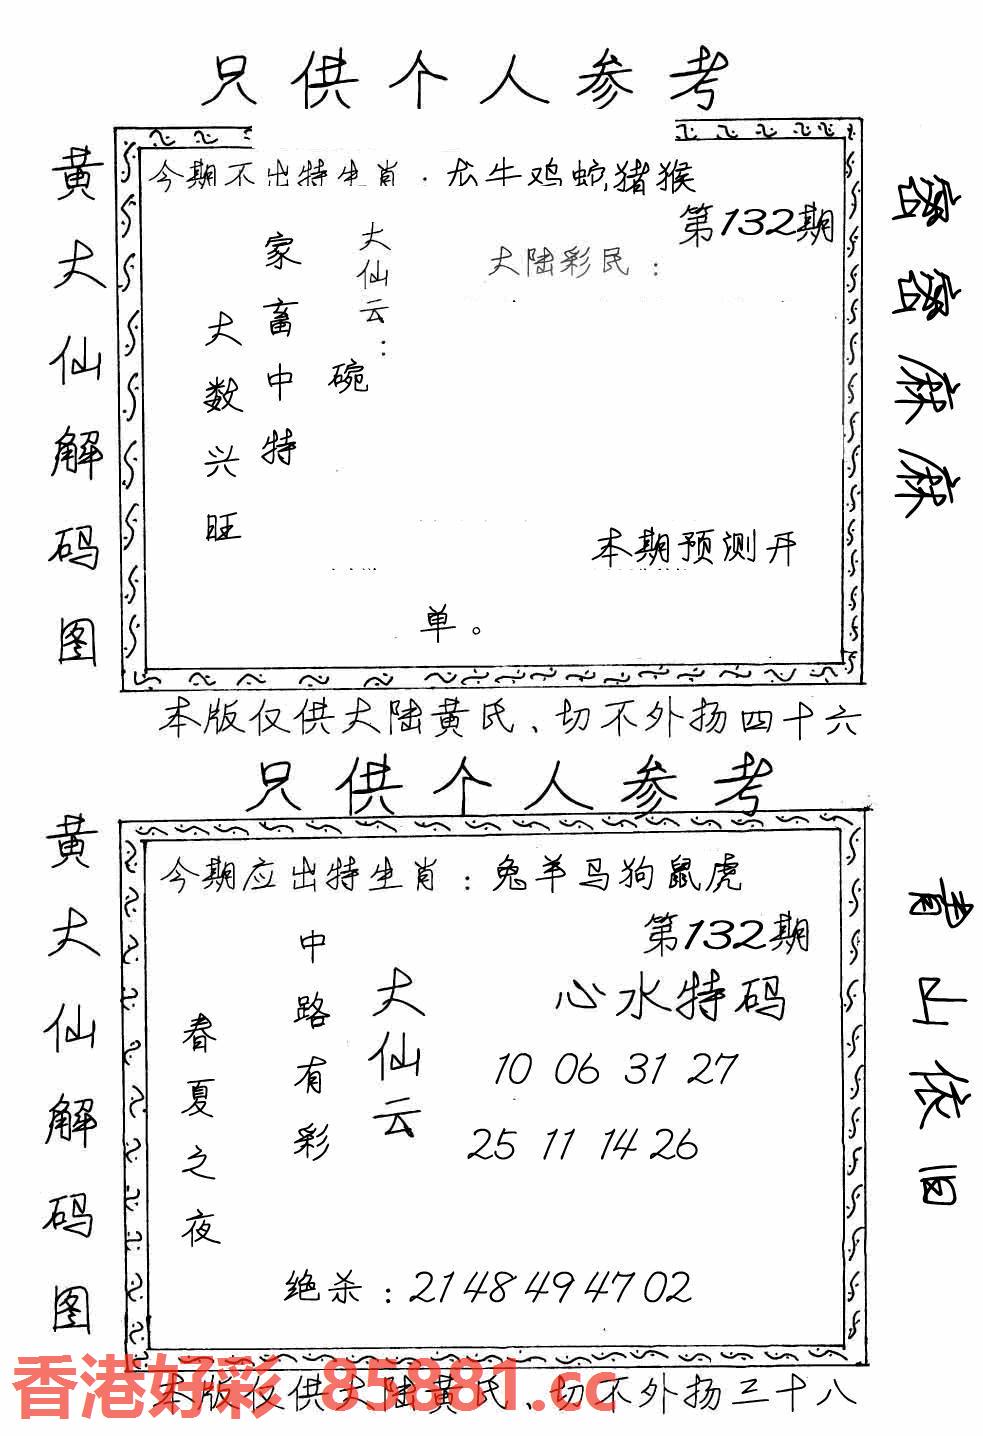 只供个人参考
黄大仙解码图
今期不出特生肖:龙牛鸡蛇猪猴
第132期
大陆彩民:
大仙云:
碗
家畜中特
大数兴旺
本期预测开
单。
密密麻麻
本版仅供大陆黄氏、切不外扬四十六
只供个人参考
黄大仙解码图
今期应出特生肖:兔羊马狗鼠虎
第132期
心水特码
10 06 31 27
25 11 14 26
大仙云
中路有彩
春夏之夜
绝杀:21 48 49 47 02
青山依旧
香港好彩 85881.cc
本版仅供大陆黄氏、切不外扬三十八